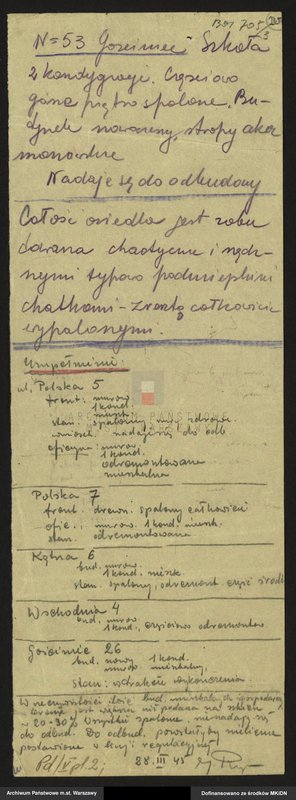 BOS 705/3
N=53 Gościniec Szkoła
2 kondygnacje. Częściowo
górne piętro spalone. Bu-
dynek narożny, stropy akor
monowskie
Nadaje się do odbudowy
Całość osiedla jest zabu
dowana chaotycznie i nędz-
nymi typowo podmiejskimi
chatkami - zresztą całkowicie
wypalonymi.
Uzupełnienie:
ul. Polska 5
front: murow.
1 kond.
mieszk.
stan: spalony, mur. zdrowe
nadający się do odb.
oficyna: murow.
1 kond.
odremontowana
mieszkalna
Polska 7
front: drewn. spalony całkowici
ofic.: murow. 1 kond. mieszk.
stan: odremontowana
Kątna 6
bud. murow.
1 kond. mieszk.
stan: spalony, odremont. część środk
Wschodnia 4
bud. murow.
1 kond. częściowo odremontow.
Gościniec 26
bud. nowy 1 kond.
murow. mieszkalny,
stan: w trakcie wykończenia.
W rzeczywistości ilość bud. mieszkalnych i gospodarcz
jest większa niż podana na szkicu
~ 20-30% Wszystkie spalone, nie nadają się
do odbud. Do odbud. powstałyby
postawione w linji regulacyjnej
28 III 45
Pd/V pl. 2.
ARCHIWUM PAŃSTWOWE
Archiwum Państwowe m.st. Warszawy
Dofinansowano ze środków MKiDN